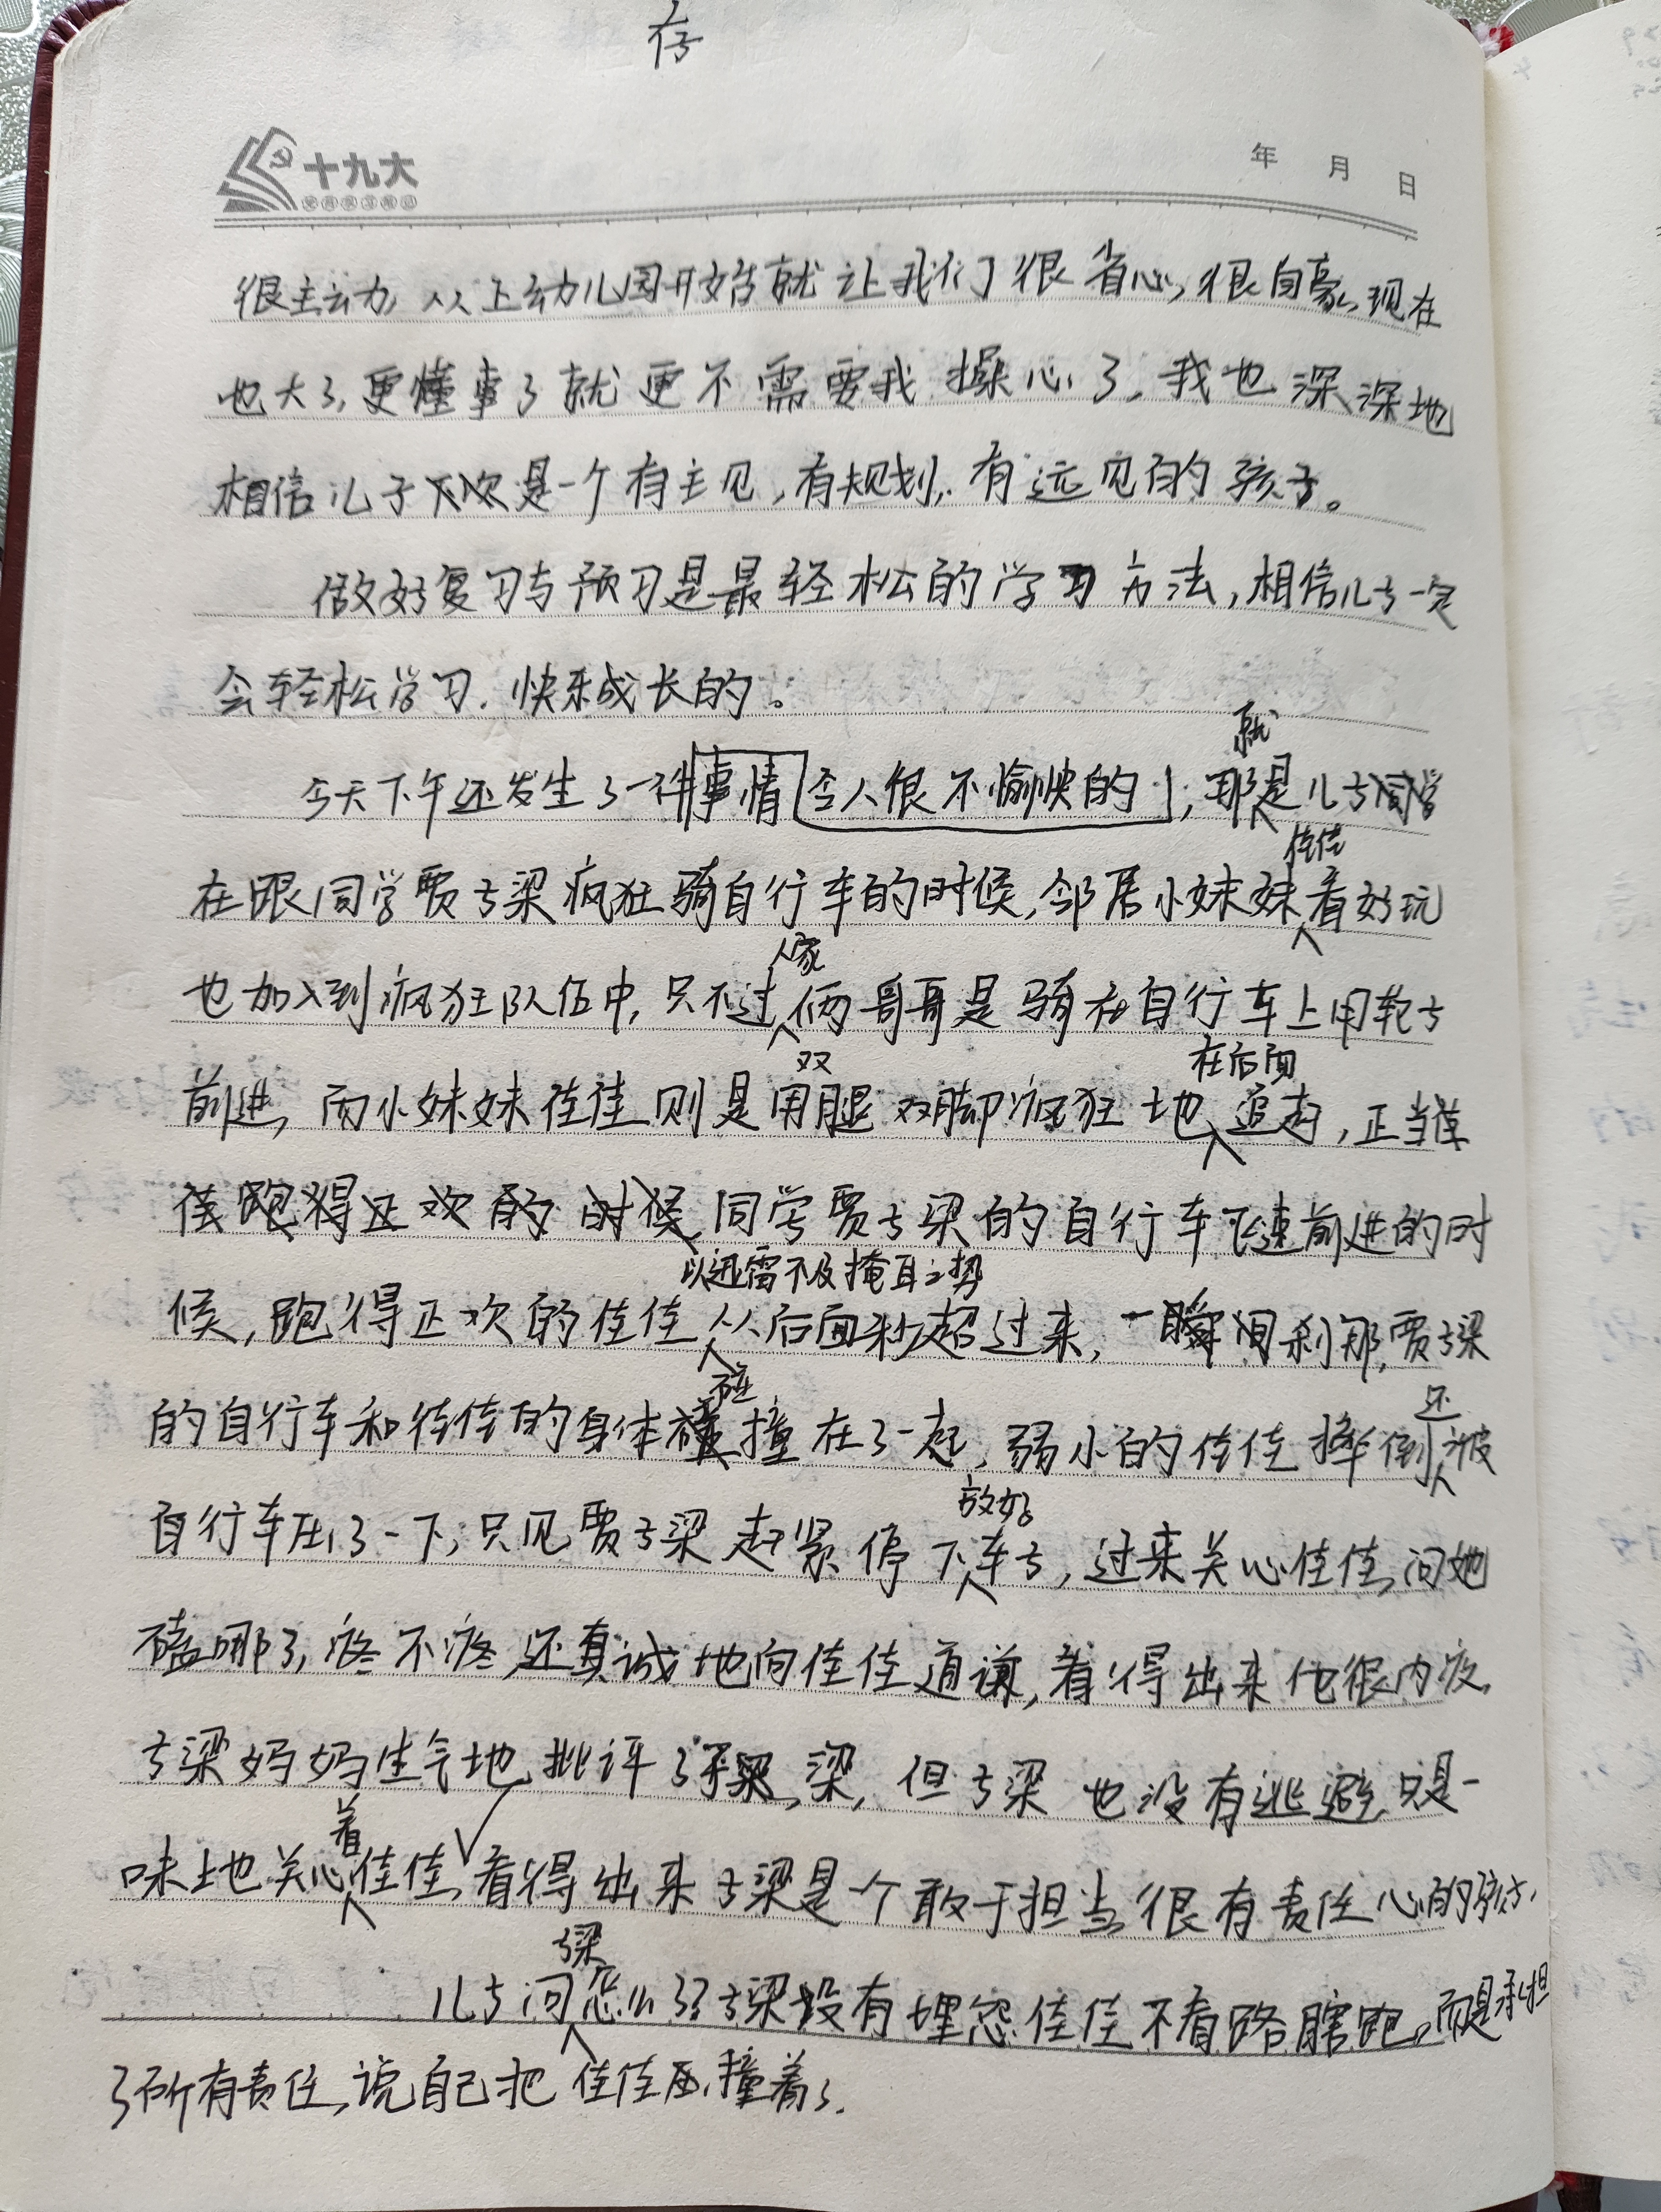 存
十九大
年 月 日
很主动,从上幼儿园开始就让我们很省心,很自豪,现在
也大了,更懂事了就更不需要我操心了,我也深深地
相信儿子是一个有主见,有规划,有远见的孩子。
做好复习与预习是最轻松的学习方法,相信儿子一定
会轻松学习,快乐成长的。
就
今天下午还发生了一件事情令人很不愉快的,那是儿子同学
佳佳
在跟同学贾子梁疯狂骑自行车的时候,邻居小妹妹看好玩
人家
也加入到疯狂队伍中,只不过俩哥哥是骑在自行车上用轮子
双 在后面
前进,而小妹妹佳佳则是用腿双脚疯狂地追赶,正当佳
佳跑得正欢的时候,同学贾子梁的自行车飞速前进的时
以迅雷不及掩耳之势
候,跑得正欢的佳佳从后面秒超过来,一瞬间刹那,贾子梁
碰 还
的自行车和佳佳的身体撞在了一起,弱小的佳佳摔倒被
放好
自行车压了一下,只见贾子梁赶紧停下车子,过来关心佳佳,问她
磕哪了,疼不疼,还真诚地向佳佳道谦,看得出来他很内疚,
子梁妈妈生气地批评了梁,但子梁也没有逃避,只是一
着
味地关心佳佳,看得出来子梁是个敢于担当,很有责任心的孩子,
子梁
儿子问怎么了子梁没有埋怨佳佳不看路瞎跑,而是承担
了所有责任,说自己把佳佳压,撞着了.